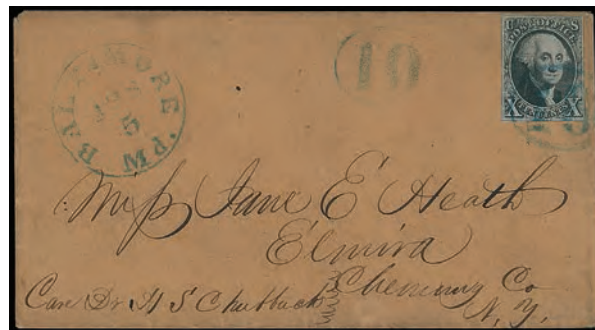 BALTIMORE Md.
5
10
POST OFFICE
X TEN CENTS X
10
Miss Jane E Heath
Elmira
Chemung Co
N. Y.
Care Dr H S Chubbuck